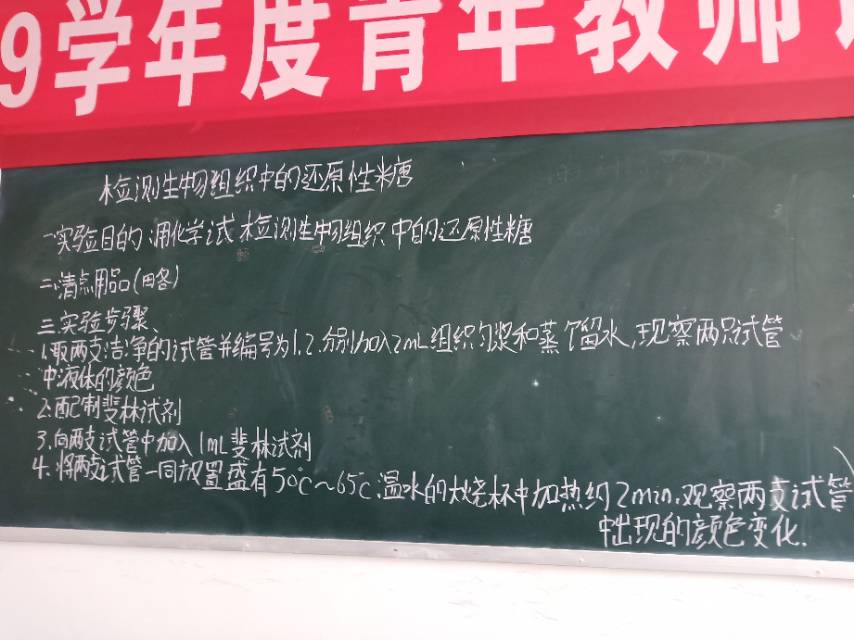 9学年度青年教师
检测生物组织中的还原性糖
一.实验目的:用化学试 检测生物组织中的还原性糖
二.清点用品(田各)
三.实验步骤、
1.取两支洁净的试管并编号为1.2.分别加入2mL组织匀浆和蒸馏水,现察两只试管
中液体的颜色
2.配制斐林试剂
3.向两支试管中加入1mL斐林试剂
4.将两支试管一同放置盛有50℃~65℃.温水的大烧杯中加热约2min.观察两支试管
中出现的颜色变化.